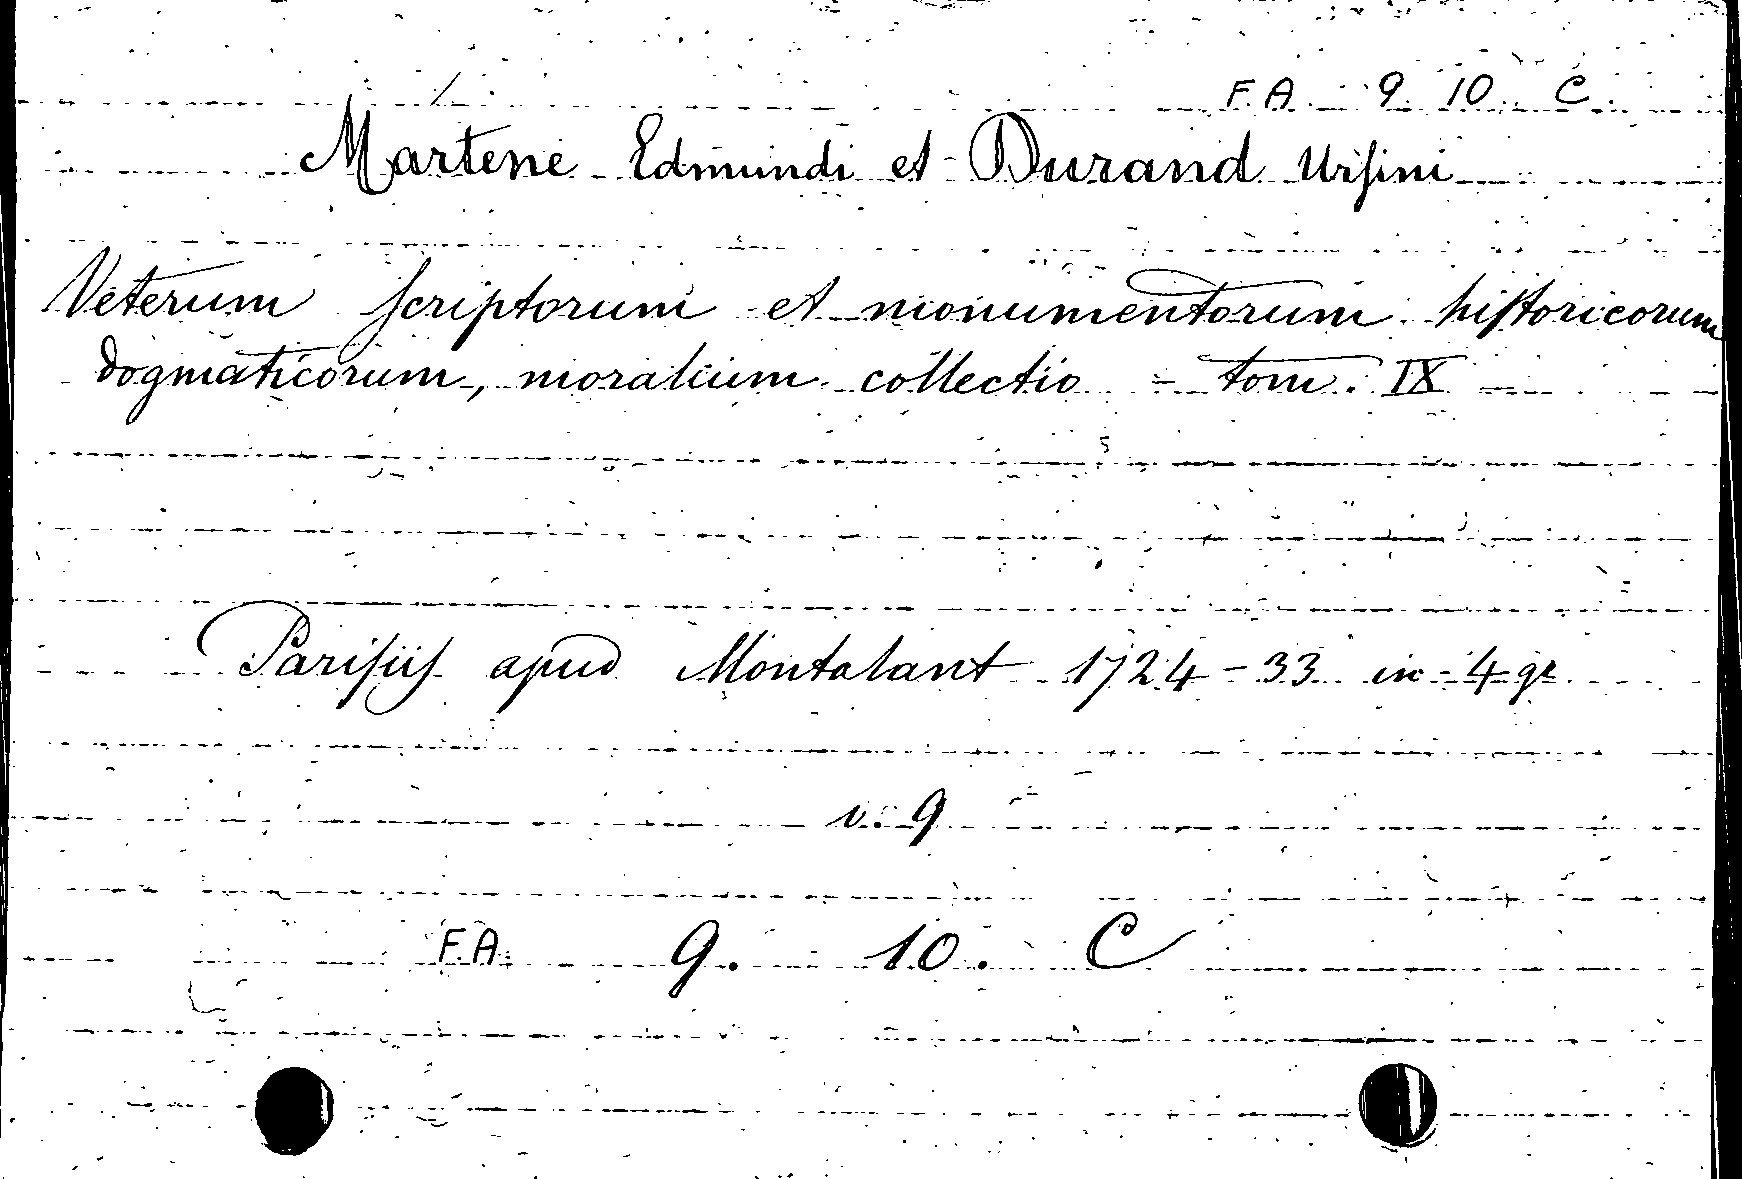 F. A. 9. 10. C.
Martene Edmundi et Durand Urſini
Veterum ſcriptorum et monumentorum hiſtoricorum
dogmaticorum, moralium collectio - tom. IX
Pariſiiſ apud Montalant 1724-33 in-4 gr
v. 9
F. A. 9. 10. C